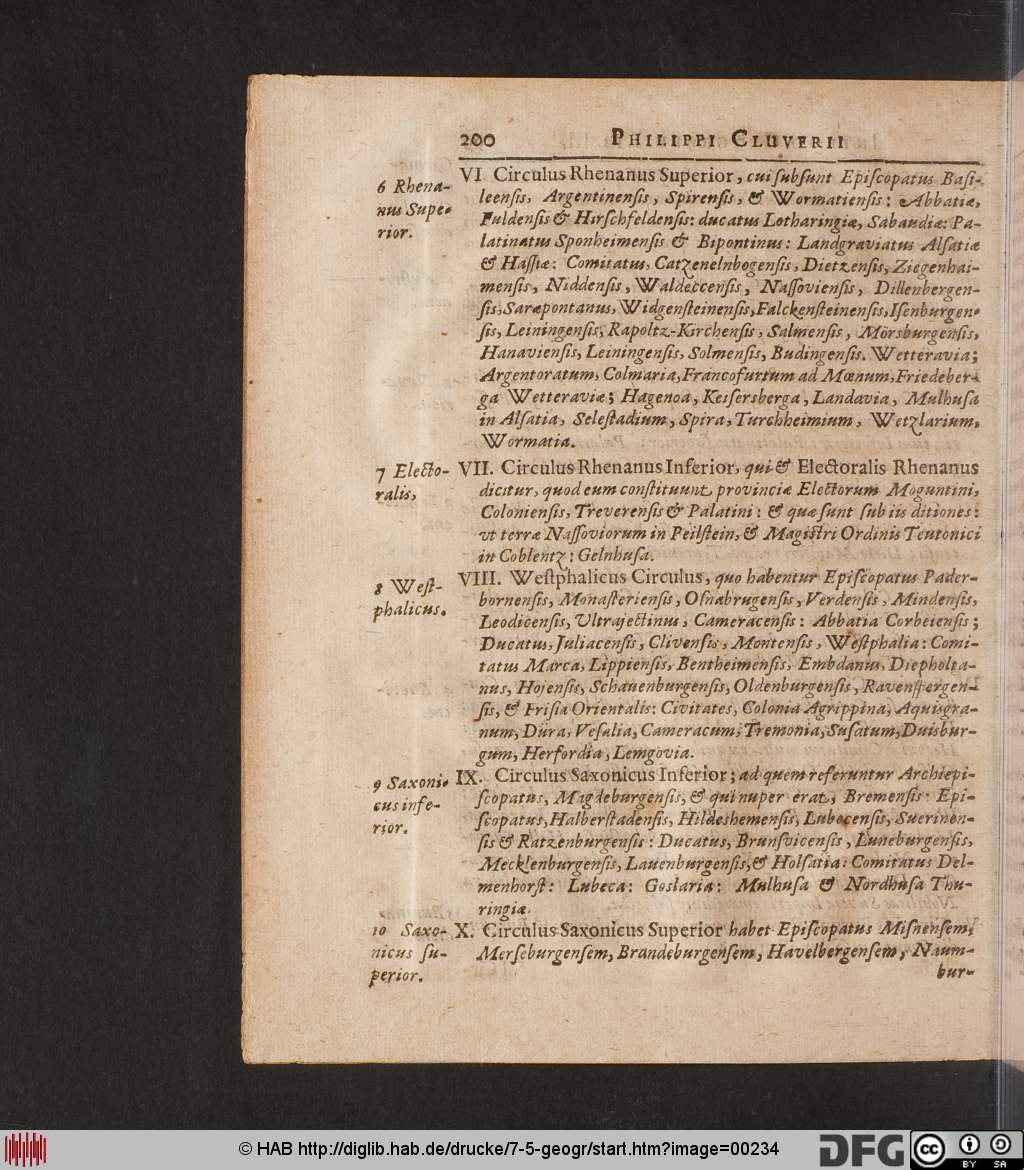 200 PHILIPPI CLUVERII
6 Rhena-
nus Supe-
rior.
VI Circulus Rhenanus Superior, cui subsunt Episcopatus Basi-
leensis, Argentinensis, Spirensis, & Wormatiensis: Abbatiæ,
Fuldensis & Hirschfeldensis: ducatus Lotharingiæ, Sabaudiæ: Pa-
latinatus Sponheimensis & Bipontinus: Landgraviatus Alsatiæ
& Hassiæ: Comitatus, Catzenelnbogensis, Dietzensis, Ziegenhai-
mensis, Niddensis, Waldeccensis, Nassoviensis, Dillenbergen-
sis, Saræpontanus, Widgensteinensis, Falckensteinensis, Isenburgen-
sis, Leiningensis, Rapoltz-Kirchensis, Salmensis, Mörsburgensis,
Hanaviensis, Leiningensis, Solmensis, Budingensis. Wetteravia;
Argentoratum, Colmaria, Francofurtum ad Mœnum, Friedeber-
ga Wetteraviæ; Hagenoa, Keisersberga, Landavia, Mulhusa
in Alsatia, Selestadium, Spira, Turchheimium, Wetzlarium,
Wormatia.
7 Electo-
ralis,
VII. Circulus Rhenanus Inferior, qui & Electoralis Rhenanus
dicitur, quod eum constituunt provinciæ Electorum Moguntini,
Coloniensis, Treverensis & Palatini: & quæ sunt sub iis ditiones:
vt terræ Nassoviorum in Peilstein, & Magistri Ordinis Teutonici
in Coblentz: Gelnhusa.
8 West-
phalicus.
VIII. Westphalicus Circulus, quo habentur Episcopatus Pader-
bornensis, Monasteriensis, Osnabrugensis, Verdensis, Mindensis,
Leodicensis, Ultrajectinus, Cameracensis: Abbatia Corbeiensis;
Ducatus, Juliacensis, Clivensis, Montensis, Westphalia: Comi-
tatus Marca, Lippiensis, Bentheimensis, Embdanus, Diepholta-
nus, Hojensis, Schauenburgensis, Oldenburgensis, Ravenspergen-
sis, & Frisia Orientalis: Civitates, Colonia Agrippina, Aquisgra-
num, Düra, Vesalia, Cameracum, Tremonia, Susatum, Duisbur-
gum, Herfordia, Lemgovia.
9 Saxoni-
cus infe-
rior.
IX. Circulus Saxonicus Inferior; ad quem referuntur Archiepi-
scopatus, Magdeburgensis, & qui nuper erat, Bremensis: Epi-
scopatus, Halberstadensis, Hildeshemensis, Lubecensis, Suerinen-
sis & Ratzenburgensis: Ducatus, Brunsvicensis, Luneburgensis,
Mecklenburgensis, Lauenburgensis, & Holsatia: Comitatus Del-
menhorst: Lubeca: Goslaria: Mulhusa & Nordhusa Thu-
ringiæ.
10 Saxo-
nicus su-
perior.
X. Circulus Saxonicus Superior habet Episcopatus Misnensem,
Merseburgensem, Brandeburgensem, Havelbergensem, Naum-
bur-
© HAB http://diglib.hab.de/drucke/7-5-geogr/start.htm?image=00234
DFG
cc BY SA